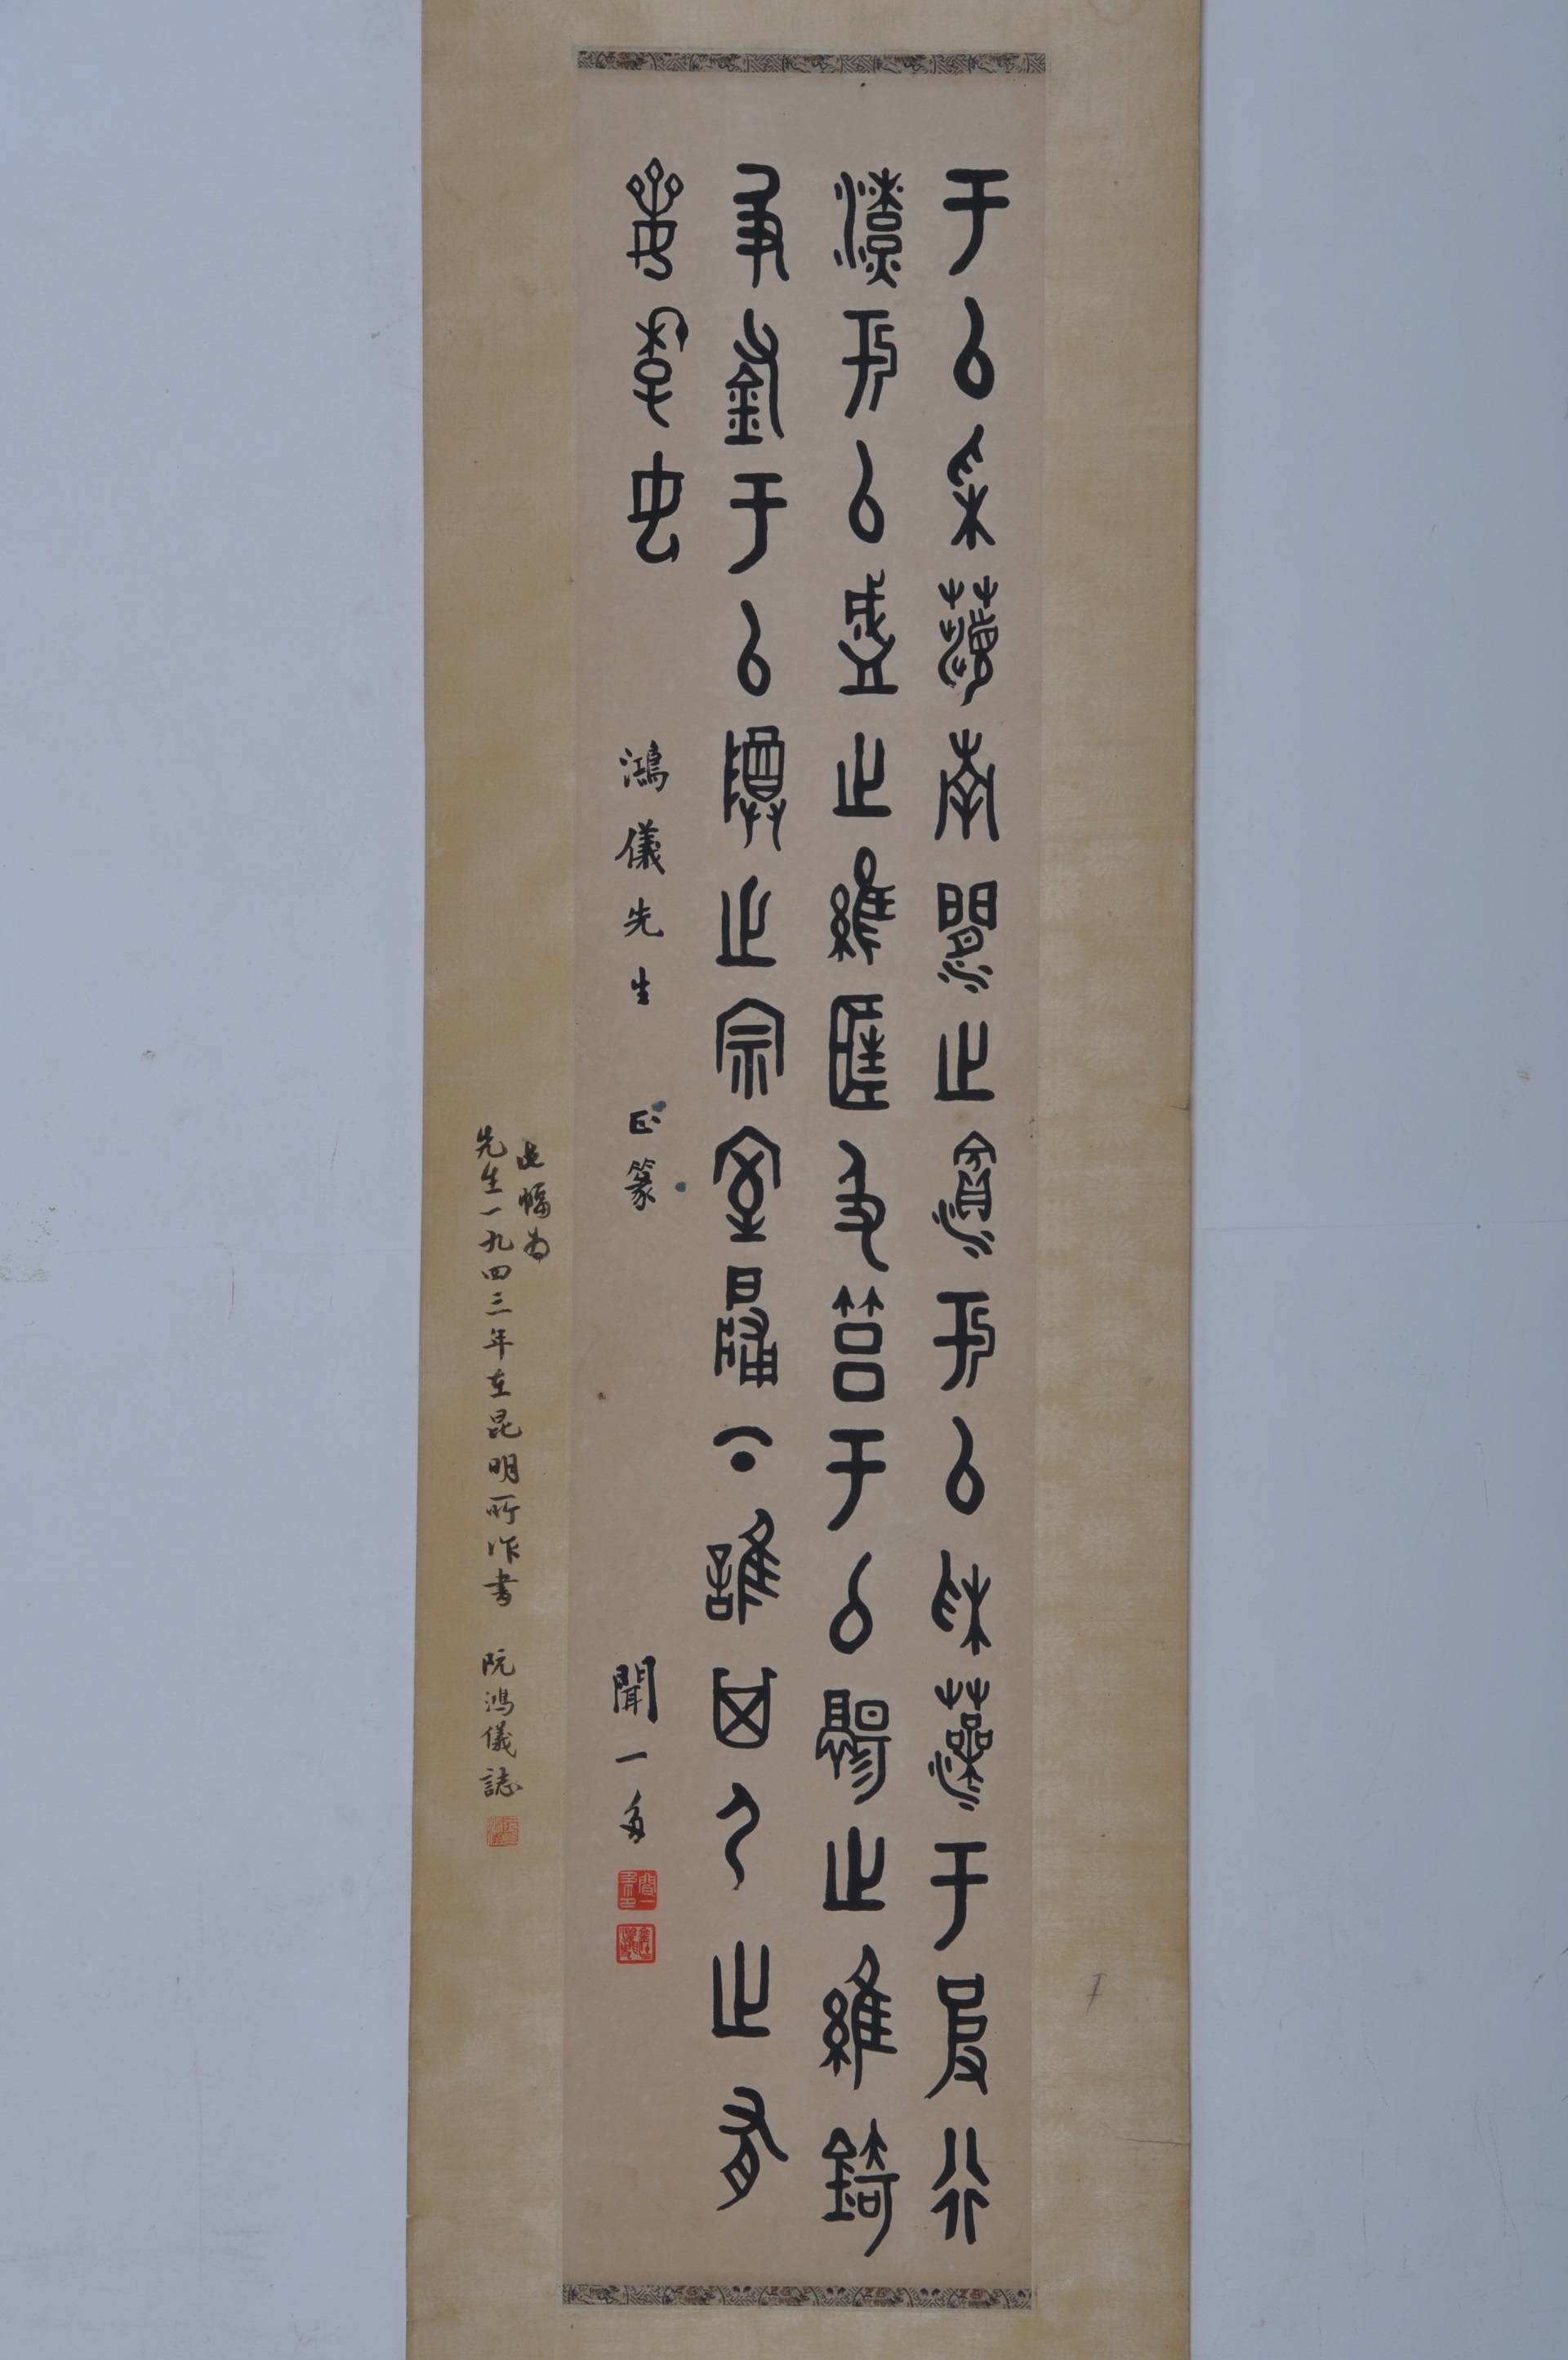 于以采蘋南澗之濱于以采藻于彼行
潦于以盛之維匡及筥于以鬺之維錡
及釜于以奠之宗室牖下誰其尸之有
齊季女
鴻儀先生 正篆 聞一多
聞一多印
此幅为
先生一九四三年在昆明所作書 阮鴻儀誌